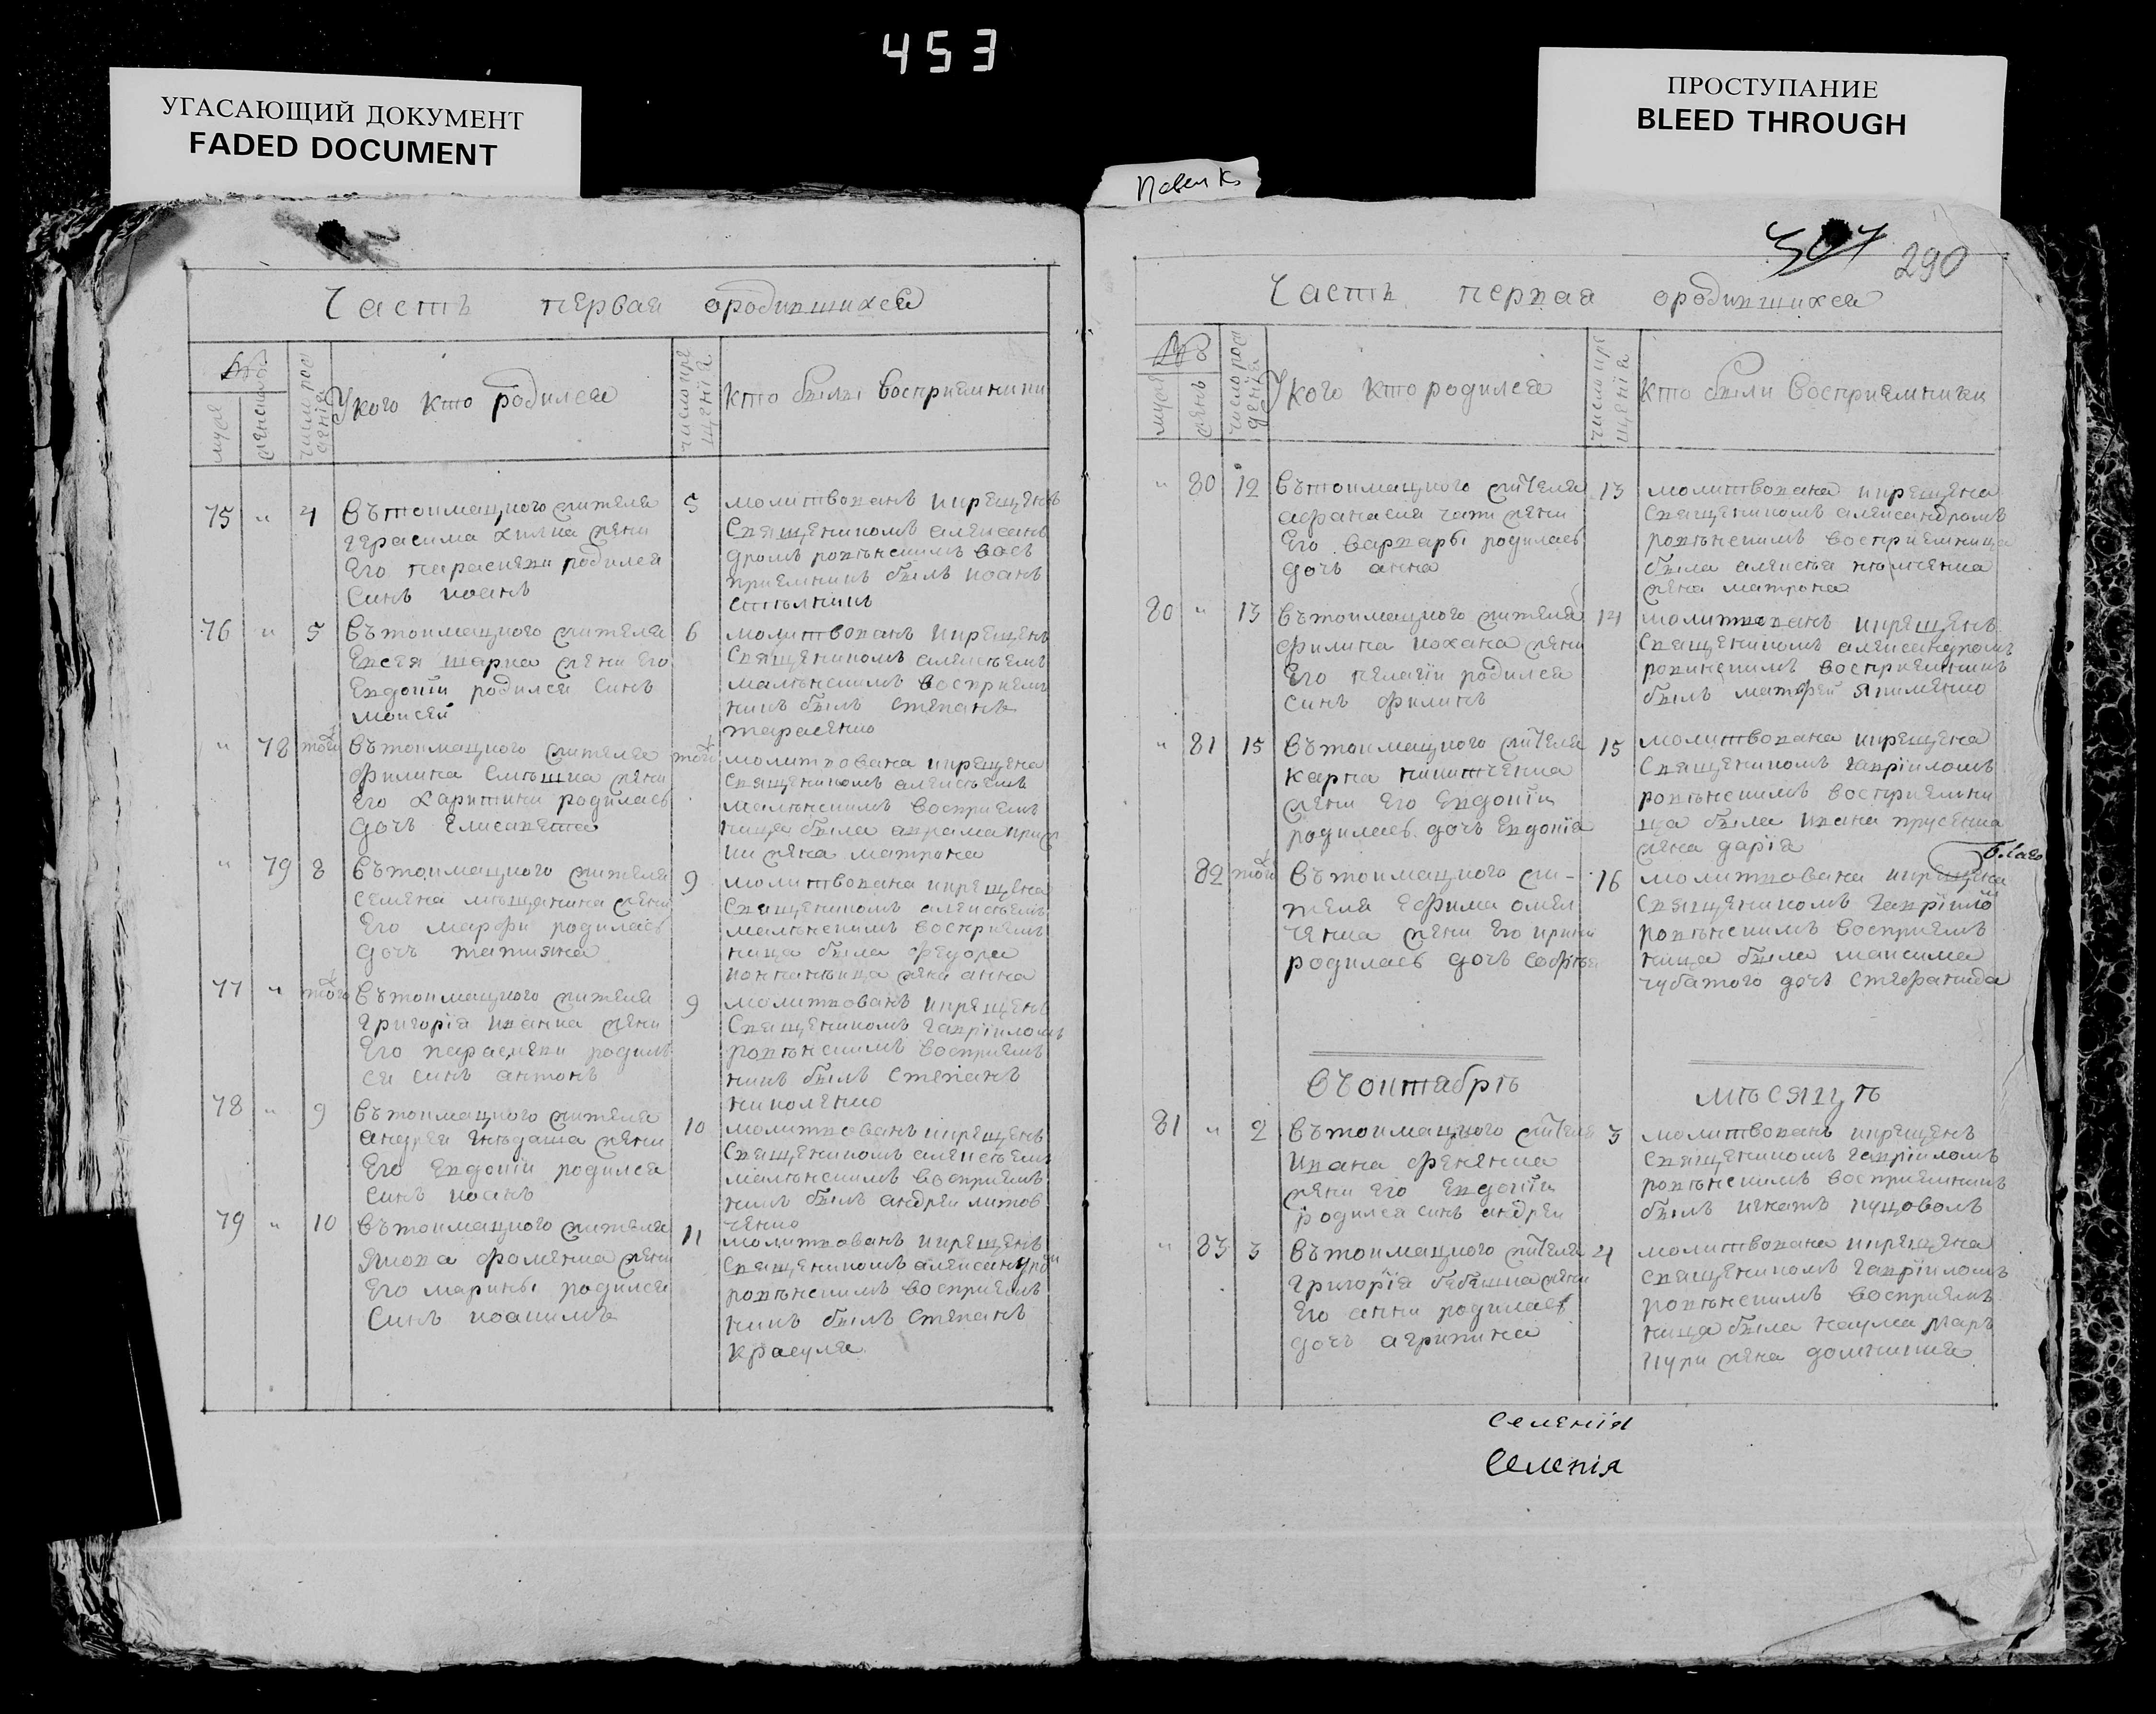 453
УГАСАЮЩИЙ ДОКУМЕНТ
FADED DOCUMENT
ПРОСТУПАНИЕ
BLEED THROUGH
290
Часть первая ородившихся
№
числорож
дения
Укого кто родился
числокре
щенїя
кто были восприемники
75 " 4 Вътоймацкого жителя
герасима хилка жени
Его параскеви родился
синъ иоанъ
5 молитвованъ икрещенъ
Священикомъ алексань
дромъ ровѣнскимъ вось
приемникъ былъ иоанъ
76 " 5 Вътоймацкого жителя
Евсея шарка жени Его
Евдокїи родился синъ
моисей
6 молитвованъ икрещенъ
Священикомъ алексѣемъ
малѣнскимъ восприем
никъ былъ степанъ
тарасенко
" 78 того Вътоймацкого жителя
филипа смѣшка жени
Его харитини родилась
дочъ Елисавета
того молитвована икрещена
Священикомъ алексѣемъ
малѣнскимъ восприем
ница была
жена матрона
" 79 8 Вътоймацкого жителя
семена мѣщанина жени
Его марфи родилась
дочъ татияна
9 молитвована икрещена
Священикомъ алексѣемъ
малѣнскимъ восприем
ница была федора
жена анна
77 " того Вътоймацкого жителя
григорїя иванка жени
Его параскеви родил
ся синъ антонъ
9 молитвованъ икрещенъ
Священикомъ гаврїиломъ
ровѣнскимъ восприем
никъ былъ степанъ
николенко
78 " 9 Вътоймацкого жителя
андрея гнѣдаша жени
Его Евдокїи родился
синъ иоанъ
10 молитвованъ икрещенъ
Священикомъ алексѣемъ
малѣнскимъ восприем
никъ былъ андрей литов
ченко
79 " 10 Вътоймацкого жителя
якова фоменка жени
Его марини родился
синъ иоакимъ
11 молитвованъ икрещенъ
Священикомъ александро
ровѣнскимъ восприем
никъ былъ степанъ
красуля
Часть первая ородившихся
№
числорож
денїя
Укого кто родился
числокре
щенїя
кто были восприемники
" 80 12 Вътоймацкого жителя
афанасия жени
Его варвары родилась
дочъ анна
13 молитвована икрещена
Священикомъ александромъ
ровѣнскимъ восприемница
была алексѣя
жена матрона
80 " 13 Вътоймацкого жителя
филипа кохана жени
Его пелагїи родился
синъ филипъ
14 молитвованъ икрещенъ
Священикомъ александромъ
ровѣнскимъ восприемникъ
былъ матфей якименко
" 81 15 Вътоймацкого жителя
карпа никитченка
жени Его Евдокїи
родилась дочъ Евдокїа
15 молитвована икрещена
Священикомъ гаврїиломъ
ровѣнскимъ восприемни
ца была ивана прусенка
жена дарїя
82 того Вътоймацкого жи-
теля Ефима омел
ченка жени Его
родилась дочъ софѣя
16 молитвована икрещена
Священикомъ гаврїило
ровѣнскимъ восприем
ница была максима
чубатого дочъ стефанида
Въоктябрѣ мѣсяцѣ
81 " 2 Вътоймацкого жителя
Ивана фененка
жени Его Евдокїи
родился синъ андрей
3 молитвованъ икрещенъ
Священикомъ гаврїиломъ
ровѣнскимъ восприемникъ
былъ игнатъ куцоволъ
" 83 3 Вътоймацкого жителя
григорїя бабешка жени
Его анни родилась
дочъ агрипина
4 молитвована икрещена
Священикомъ гаврїиломъ
ровѣнскимъ восприем
ница была наума
жена домникия
селенїя
Селенія